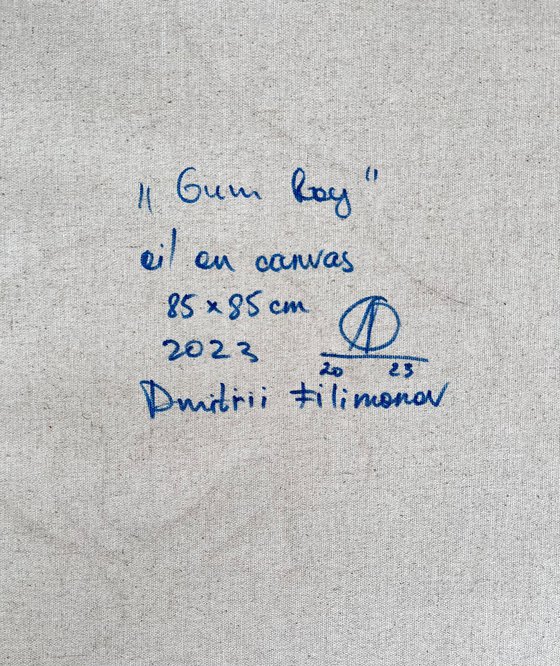 „Gum Boy"
oil on canvas
85 x 85 cm
2023
20 23
Dmitrii Filimonov